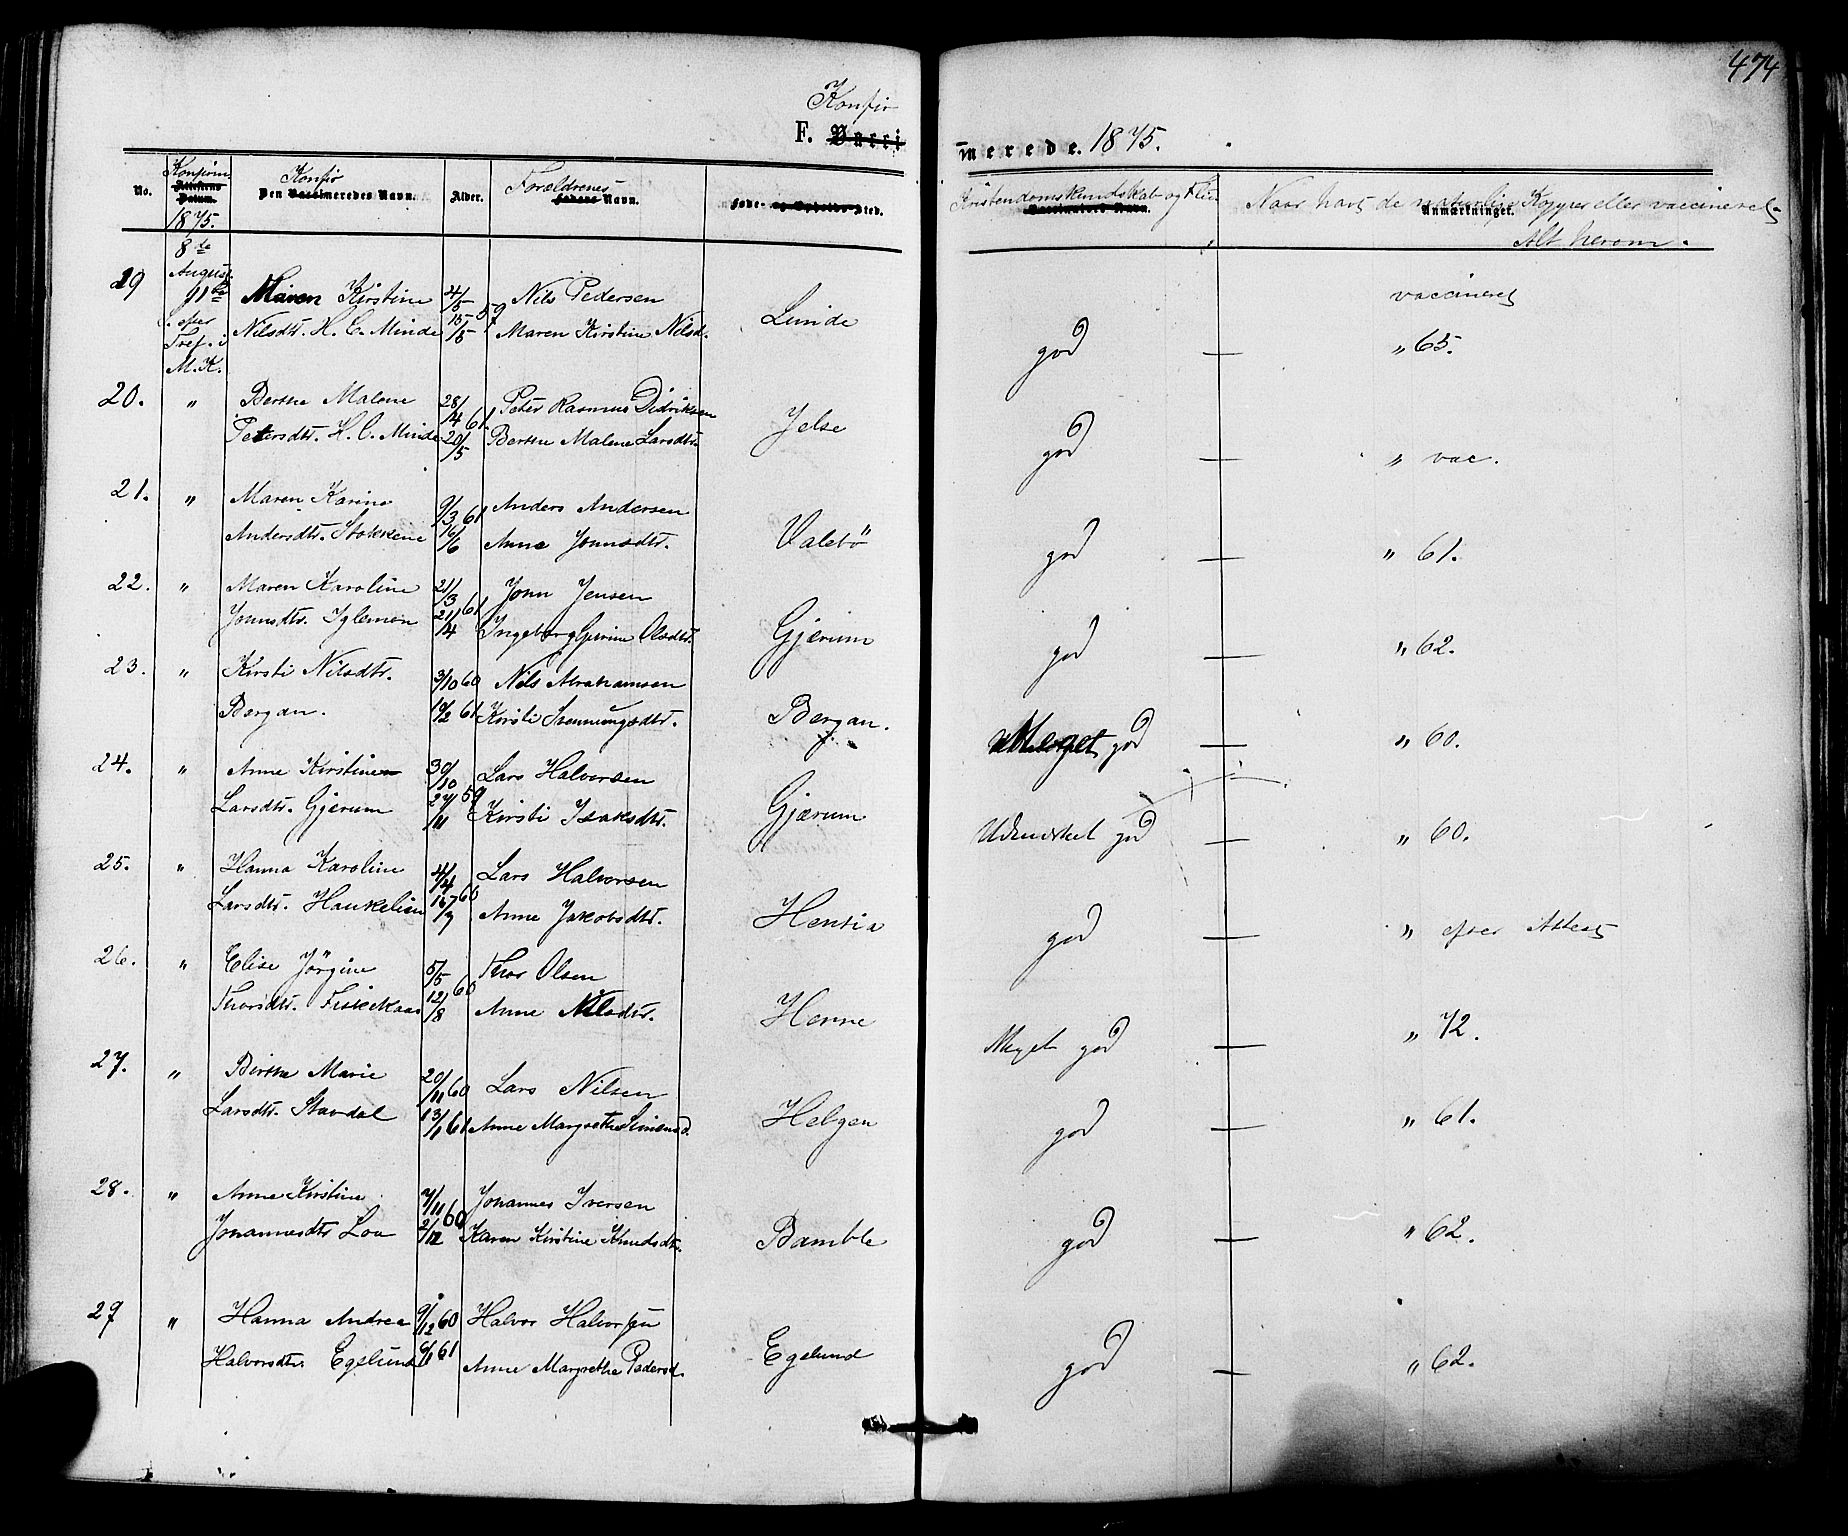 474
Konfir
F. Vacci
merede. 1875.
No.
Konfirm
Attestens
Datum.
1875.
Konfir
Den Vaccineredes Navn.
Alder.
Forældrenes
Navn.
Føde- og Opholds-Sted.
Kristendomskundskab og Flid
Vaccinators Navn.
Naar havt de naturlige Kopper eller vaccineret
Anmærkninger.
Alt herom.
8de
August
19 Maren Kirstine 4/5 59 Nils Pedersen vaccineret
Nilsdtr. H. E. Minde 15/5 Maren Kirstine Nilsd. Lunde god — " 65.
M. K.
20. " Berthe Malene 28/4 61 Peter Rasmus Didriksen
Petersdtr. H. E. Minde 20/5 Berthe Malene Larsdtr. Jelse god — " vac.
21. " Maren Karine 9/3 61 Anders Andersen
Andersdtr. Stokkene 16/6 Anne Johnsdtr. Valebö god — " 61.
22. " Maren Karoline 21/3 61 John Jensen
Johnsdtr. Iglemon 21/4 Ingeborg Gurine Olsdtr. Gjærum god — " 62.
23. " Kirsti Nilsdtr. 3/10 60 Nils Abrahamsen
Bergan. 10/2 61 Kirsti Svennungsdtr. Bergan. Meget god — " 60.
24. " Anne Kirstine 30/10 59 Lars Halvorsen
Larsdtr. Gjerum 27/11 Kirsti Isaksdtr. Gjærum Udmerket god — " 60.
25. " Hanna Karoline 4/4 60 Lars Halvorsen
Larsdtr. Haukelien 16/7 Anne Jakobsdtr. god — " efter Attest
26. " Elise Jörgine 5/5 60 Thor Olsen
Thorsdtr. Fiskekaas 12/8 Anne Nilsdtr. Meget god — " 72.
27. " Berthe Marie 20/11 60 Lars Nilsen
Larsdtr. Stavdal 13/1 61 Anne Margrethe Simensd. Helgen god — " 61.
28. " Anne Kirstine 7/11 60 Johannes Iversen
Johannesdtr Loa 2/12 Karen Kirstine Knudsdtr. Bamble god — " 62.
29 " Hanna Andrea 9/12 60 Halvor Halvorsen
Halvorsdtr. Egelund 6/1 61 Anne Margrethe Pedersd. Egelund god — " 62.